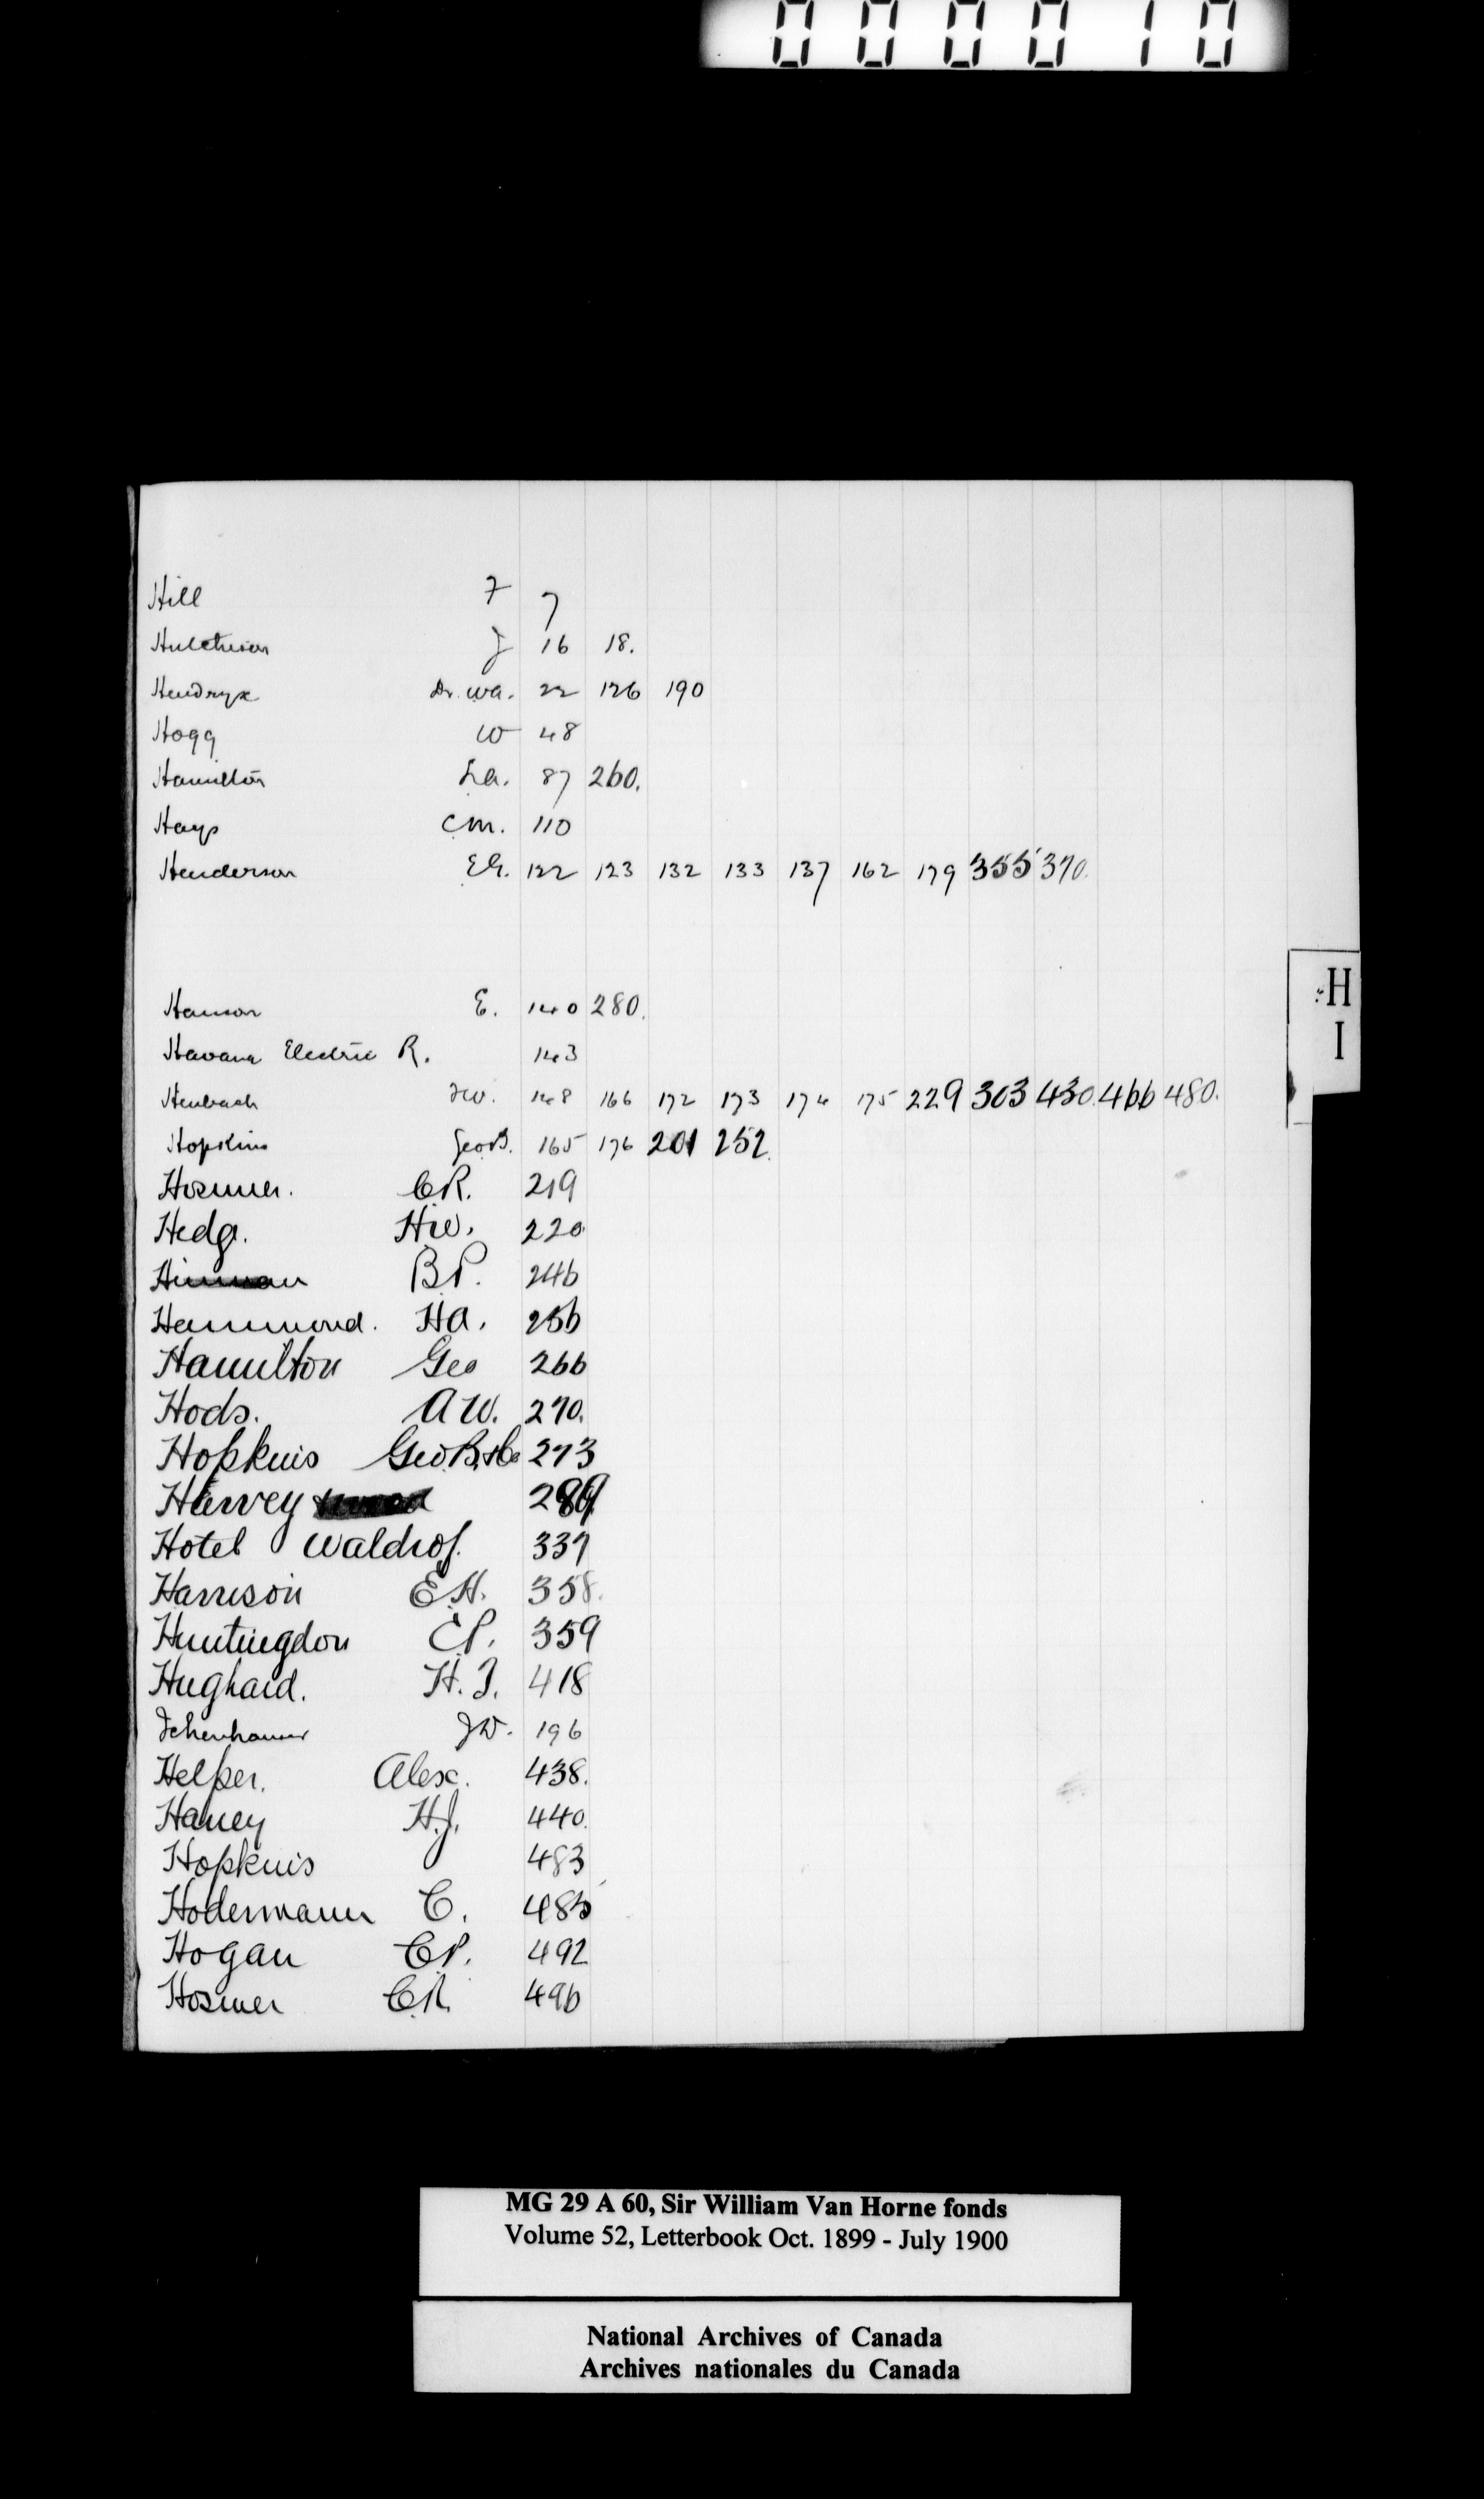 000010
Hill F 7
Hutchison J 16 18.
Hendryx Dr. W.A. 22 126 190
Hogg W 48
Hamilton L.A. 87 260.
Hays C.M. 110
Henderson E.G. 122 123 132 133 137 162 179 355 370.
H
I
Hanson E. 140 280.
Havana Electric R. 143
Heubach F.W. 148 166 172 173 174 175 229 303 430. 466 480.
Hopkins Geo B. 165 176 201 252.
Hosmer. C.R. 219
Hedg. H.W. 220
B.P. 246
Hammond. H.A. 256
Hamilton Geo 266
Hods. A.W. 270.
Hopkins Geo B. & Co 273
Harvey 289
Hotel Waldrof. 337
Harrison E.H. 358.
Huntingdon C.P. 359
Hughaid. H.J. 418
Ichenhauser J.W. 196
Helper. Alex. 438.
Haney H.J. 440.
Hopkins 483
Hodermann C. 485
Hogan C.P. 492
Hosmer C.R. 496
MG 29 A 60, Sir William Van Horne fonds
Volume 52, Letterbook Oct. 1899 - July 1900
National Archives of Canada
Archives nationales du Canada